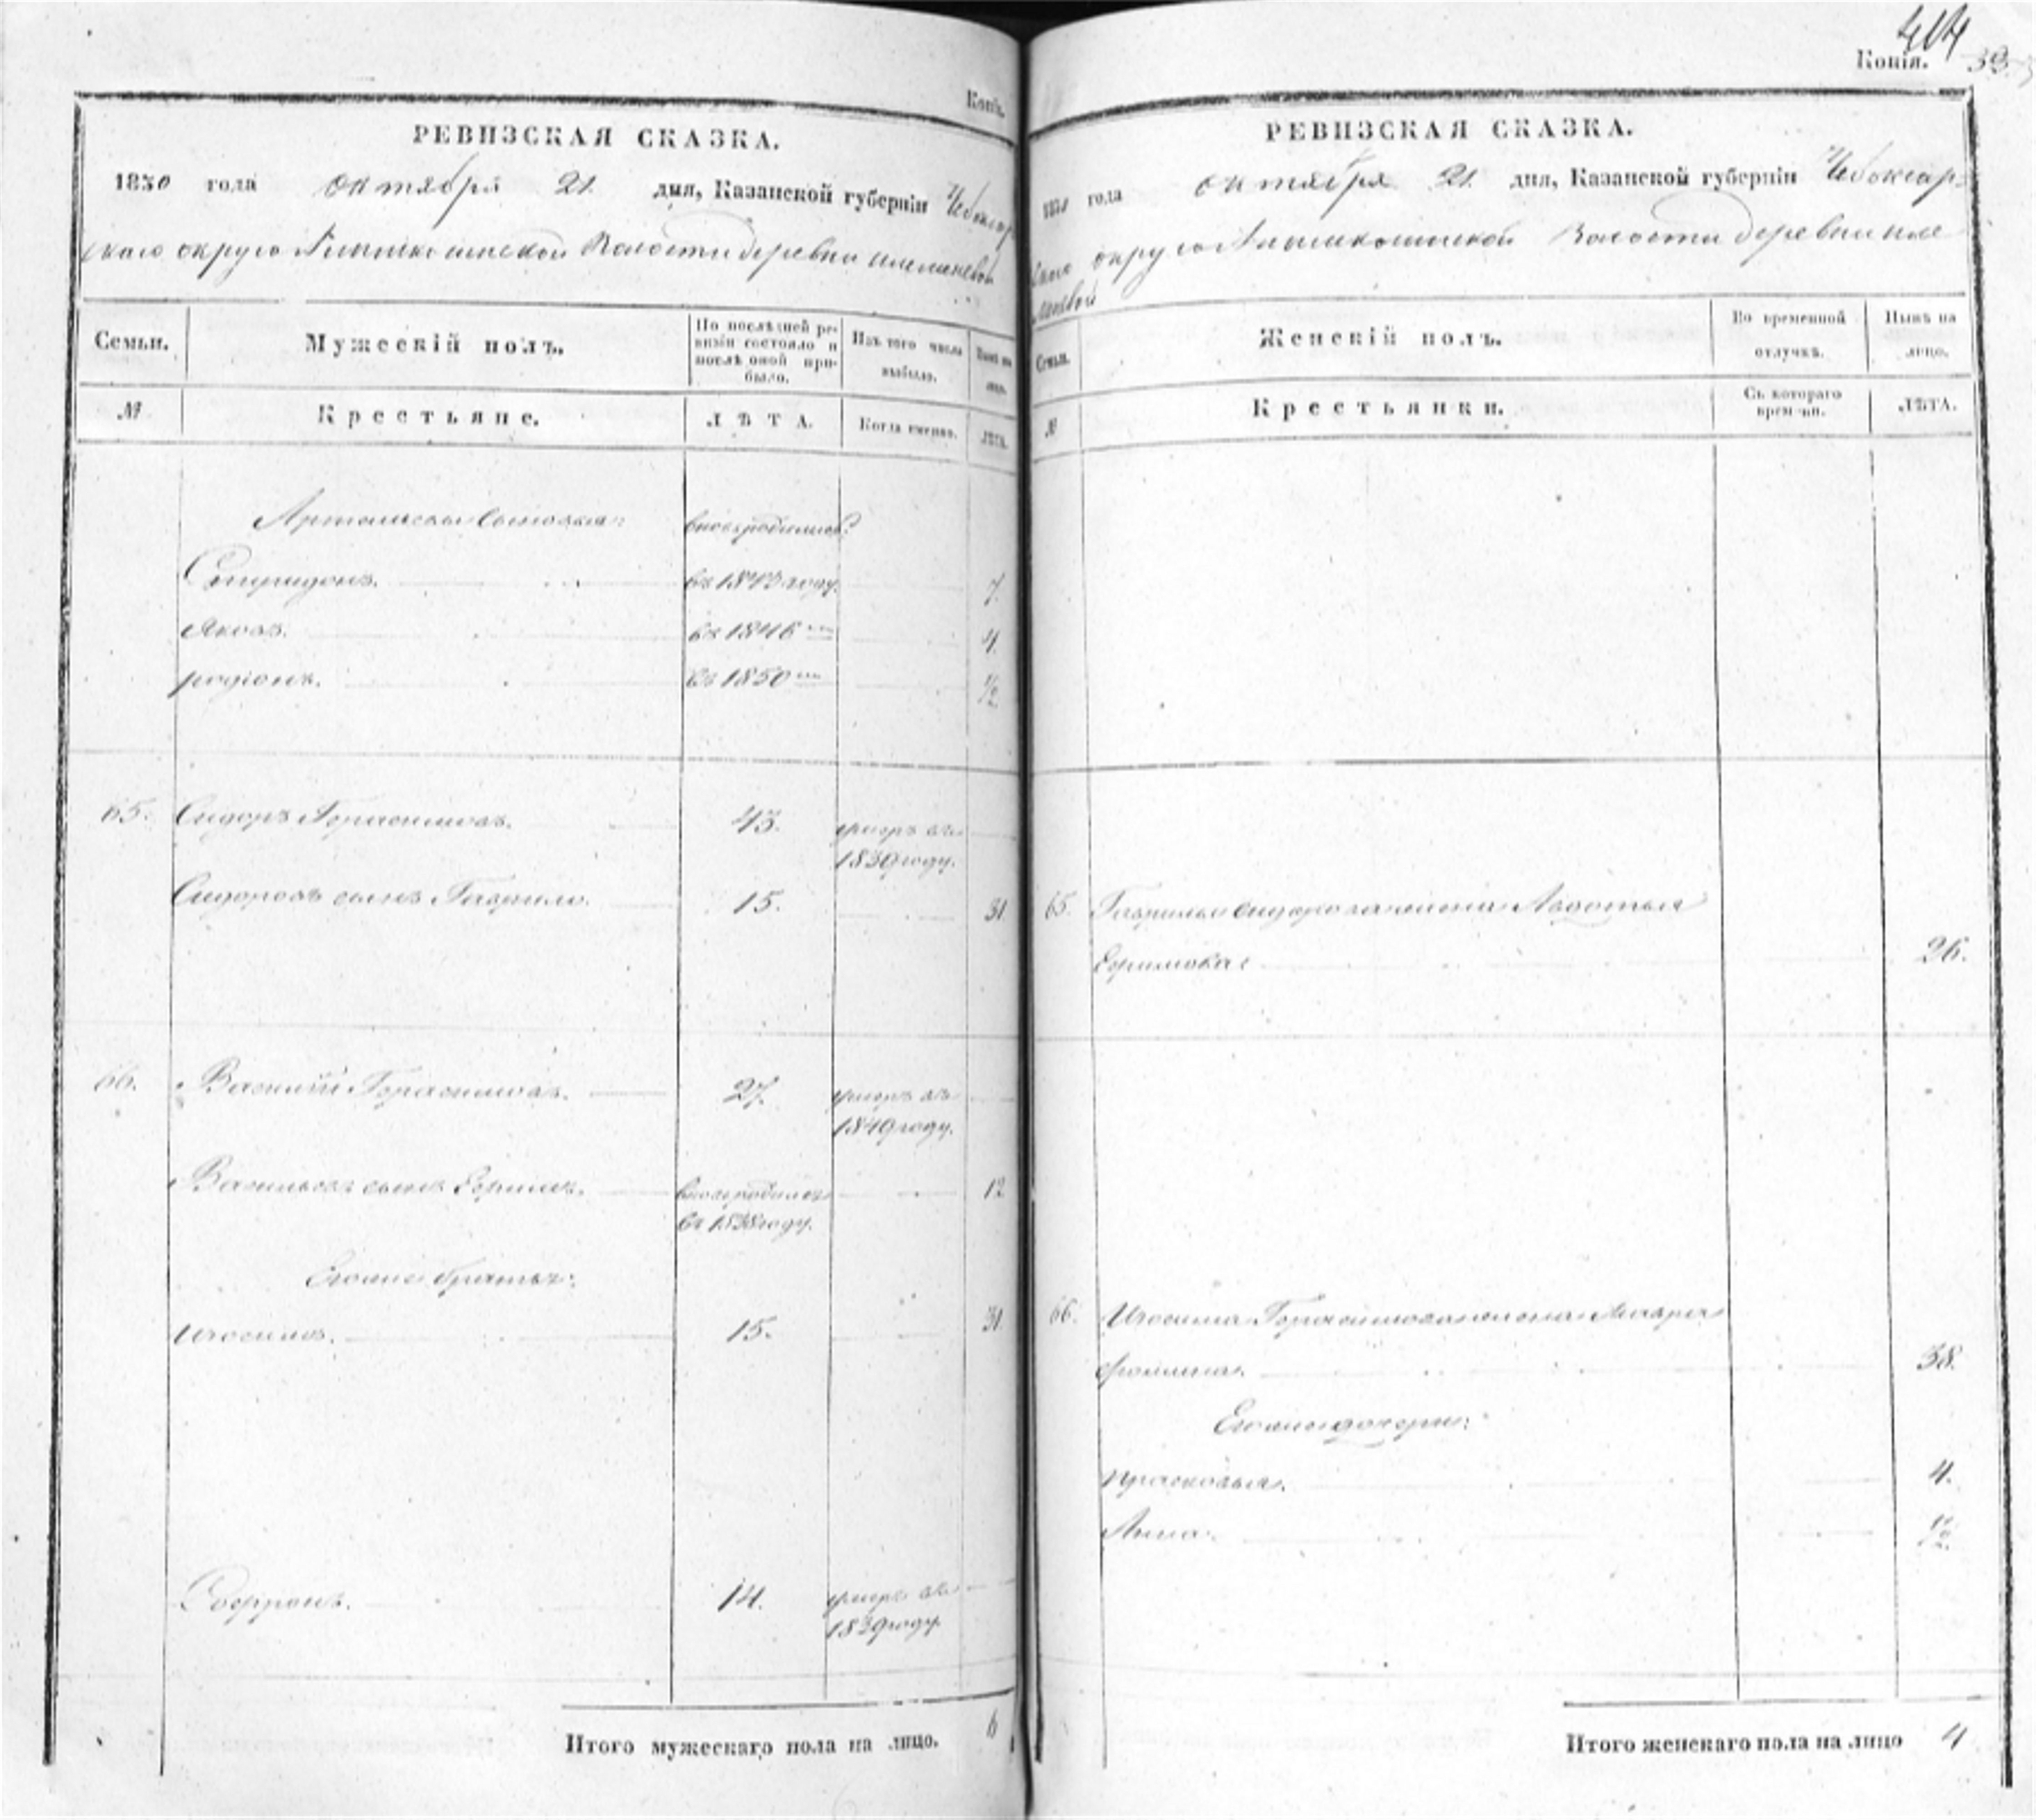 Копія.
РЕВИЗСКАЯ СКАЗКА.
1850 года октября 21. дня, Казанской губерніи Чебоксар
скаго округа волости деревни
Семьи.
Мужескій полъ.
По послѣдней ре-
визіи состояло и
послѣ оной при-
было.
Изъ того числа
выбыло.
Нынѣ на
лицо.
№
Крестьяне.
ЛѢТА.
Когда именно.
ЛѢТА.
сыновья: вновь родились:
Спиридонъ. въ 1843 году. 7.
Яковъ. въ 1846 4.
родіонъ. въ 1850 1/2
65. Сидоръ Герасимовъ. 43. умеръ въ
1839 году.
Сидоровъ сынъ Гаврило. 15. 31
66. Василій Герасимовъ. 27. умеръ въ
1849 году.
Васильевъ сынъ Ефимъ. вновь родился 12
въ 1838 году.
Его же братья:
15. 31
Софронъ. 14. умеръ въ
1839 году.
Итого мужескаго пола на лицо. 6
414
Копія.
РЕВИЗСКАЯ СКАЗКА.
1850 года октября 21. дня, Казанской губерніи Чебоксар-
скаго округа волости деревни
Семьи.
Женскій полъ.
Во временной
отлучкѣ.
Нынѣ на
лицо.
№
Крестьянки.
Съ котораго
времени.
ЛѢТА.
65. Гаврилы Сидорова жена Авдотья
Ефимова 26.
66. Герасимова жена Мавра
Фомина. 38.
Его же дочери:
прасковья. 4.
Анна. 1/2
Итого женскаго пола на лицо 4